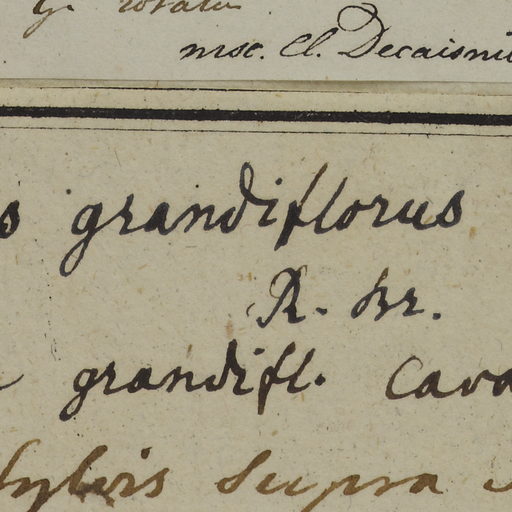 G. rotatus
msc. Cl. Decaisni
s grandiflorus
R. Br.
grandifl. Cava
sylvis supra